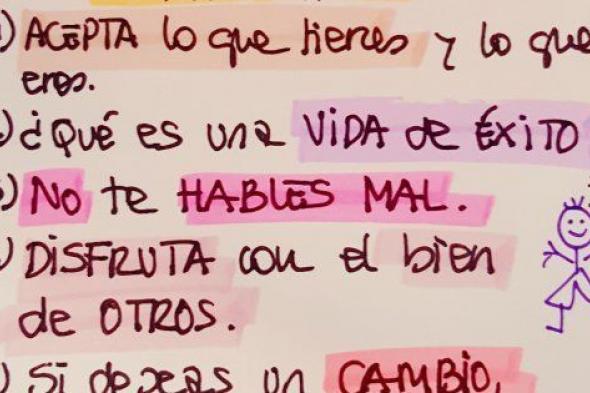 ) ACEPTA lo que tienes y lo que
eres.
) ¿Qué es una VIDA de ÉXITO
) NO te HABLES MAL.
) DISFRUTA con el bien
de OTROS.
) Si deseas un CAMBIO,